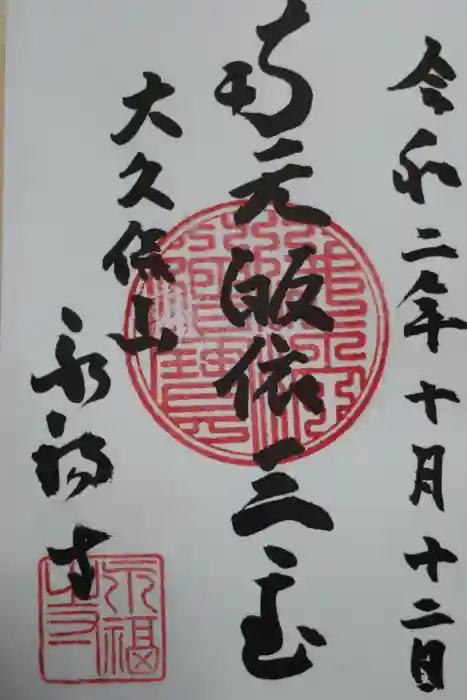 令和二年十月十二日
南无皈依三宝
大久保山
永福寺
永福